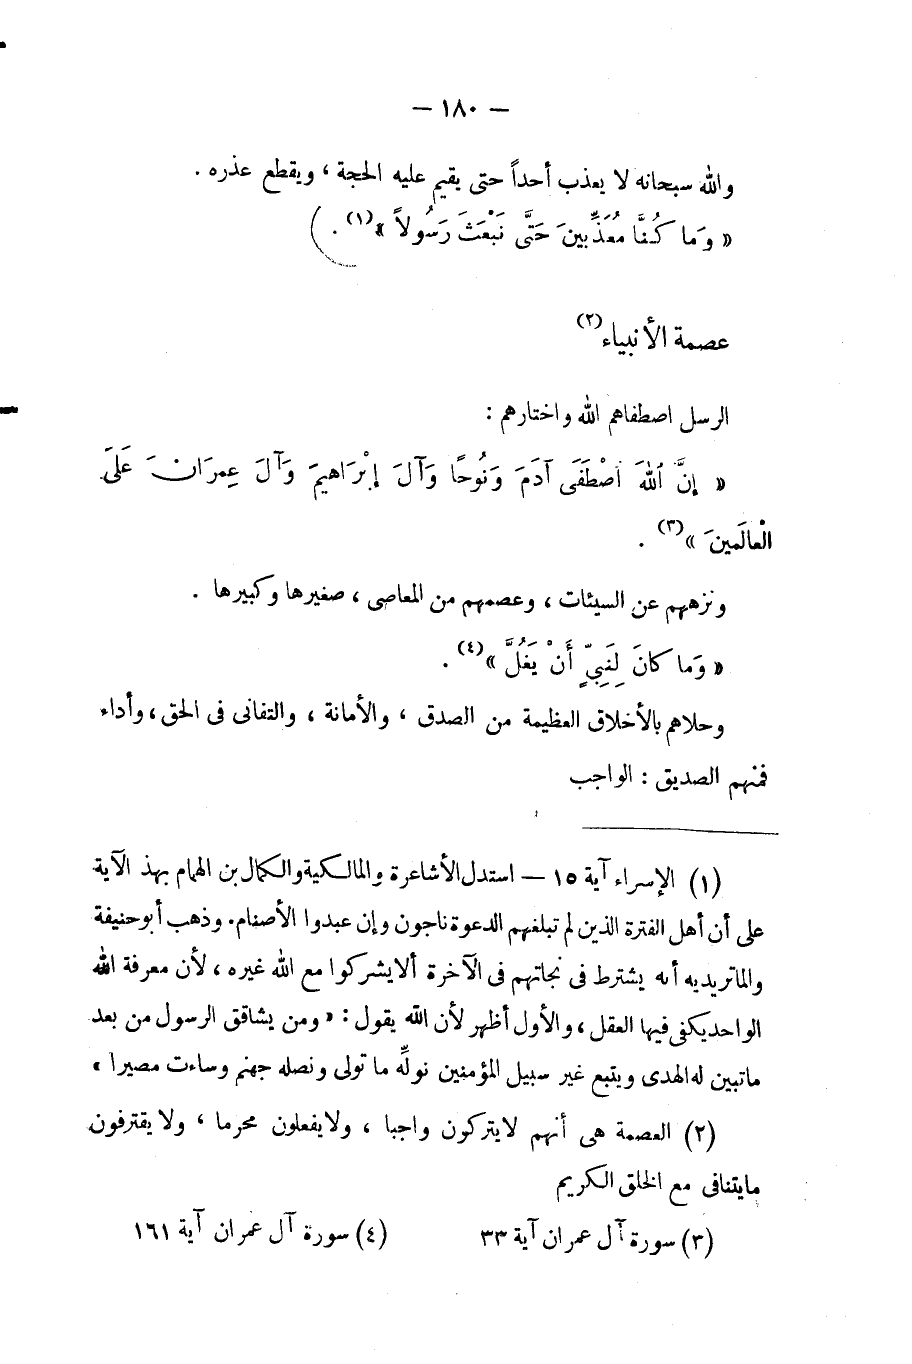 — ١٨٠ —
والله سبحانه لا يعذب أحداً حتى يقيم عليه الحجة ، ويقطع عذره .
« وَمَا كُنَّا مُعَذِّبِينَ حَتَّى نَبْعَثَ رَسُولاً »(١) .
عصمة الأنبياء(٢)
الرسل اصطفاهم الله واختارهم :
« إِنَّ اللهَ اصْطَفَى آدَمَ وَنُوحًا وَآلَ إِبْرَاهِيمَ وَآلَ عِمرَانَ عَلَى
الْعالَمِينَ »(٣) .
ونزههم عن السيئات ، وعصمهم من المعاصى ، صغيرها وكبيرها .
« وَمَا كانَ لِنَبِيٍّ أَنْ يَغُلَّ »(٤) .
وحلاهم بالأخلاق العظيمة من الصدق ، والأمانة ، والتفانى فى الحق ، وأداء
فمنهم الصديق : الواجب
(١) الإسراء آية ١٥ — استدل الأشاعرة والمالكية والكمال بن الهمام بهذ الآية
على أن أهل الفترة الذين لم تبلغهم الدعوة ناجون وإن عبدوا الأصنام. وذهب أبو حنيفة
والماتريديه أنه يشترط فى نجاتهم فى الآخرة ألا يشركوا مع الله غيره ، لأن معرفة الله
الواحد يكفى فيها العقل ، والأول أظهر لأن الله يقول : « ومن يشاقق الرسول من بعد
ماتبين له الهدى ويتبع غير سبيل المؤمنين نولِّه ما تولى ونصله جهنم وساءت مصيرا »
(٢) العصمة هى أنهم لايتركون واجبا ، ولايفعلون محرما ، ولا يقترفون
مايتنافى مع الخلق الكريم
(٣) سورة آل عمران آية ٣٣ (٤) سورة آل عمران آية ١٦١